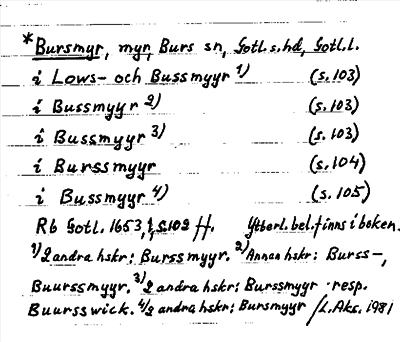 *Bursmyr, myr, Burs sn, Gotl.s.hd, Gotl.l.
i Lows- och Bussmyyr 1) (s.103)
i Bussmyyr 2) (s.103)
i Bussmyyr 3) (s.103)
i Burssmyyr (s.104)
i Bussmyyr 4) (s.105)
Rb Gotl. 1653, s.102 ff. Ytterl.bel.finns i boken.
1) 2 andra hskr: Burssmyyr. 2) Annan hskr: Burss-,
Buurssmyyr. 3) 2 andra hskr: Burssmyyr resp.
Buursswick. 4) 2 andra hskr: Bursmyyr /L.Aks. 1981